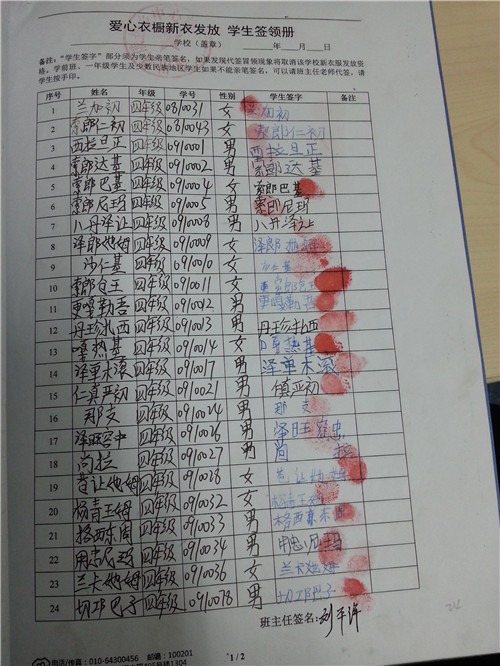 爱心衣橱新衣发放 学生签领册
学校（盖章） 年 月 日
备注：“学生签字”部分须为学生亲笔签名，如果发现代签冒领现象将取消该学校新衣服发放资
格。学前班、一年级学生及少数民族地区学生如果不能亲笔签名，可以请班主任老师代签，请
学生按手印。
序号 姓名 年级 学号 性别 学生签字 备注
1 兰加初 四年级 0810031 女 加初
2 索郎仁初 四年级 0810043 女 索郎仁初
3 西拉旦正 四年级 0910001 男 西拉旦正
4 索郎达基 四年级 0910002 男 索郎达基
5 索郎巴基 四年级 0910004 女 索郎巴基
6 索郎尼玛 四年级 0910005 男 索郎尼玛
7 八丹泽让 四年级 0910008 男 八丹泽让
8 泽郎她姆 四年级 0910009 女 泽郎她姆
9 沙仁基 四年级 0910010 女
10 索郎白王 四年级 0910011 女
11 更嘎勒吾 四年级 0910012 男
12 丹珍扎西 四年级 0910013 男 丹珍扎西
13 嘎热基 四年级 0910014 女 嘎热基
14 泽单木滚 四年级 0910017 男 泽单木滚
15 仁真亚初 四年级 0910021 男 亚初
16 那支 四年级 0910024 男 那支
17 泽旺 四年级 0910026 男 泽旺
18 尚拉 四年级 0910027 男 尚
19 让她姆 四年级 0910028 女
20 杨青王姆 四年级 0910032 女 杨青王姆
21 四年级 0910033 男
22 尼玛 四年级 0910034 男
23 兰卡她姆 四年级 0910036 女 兰卡她姆
24 切邛巴子 四年级 0910078 男
班主任签名：
电话/传真：010-64300456 邮编：100201
1 / 2